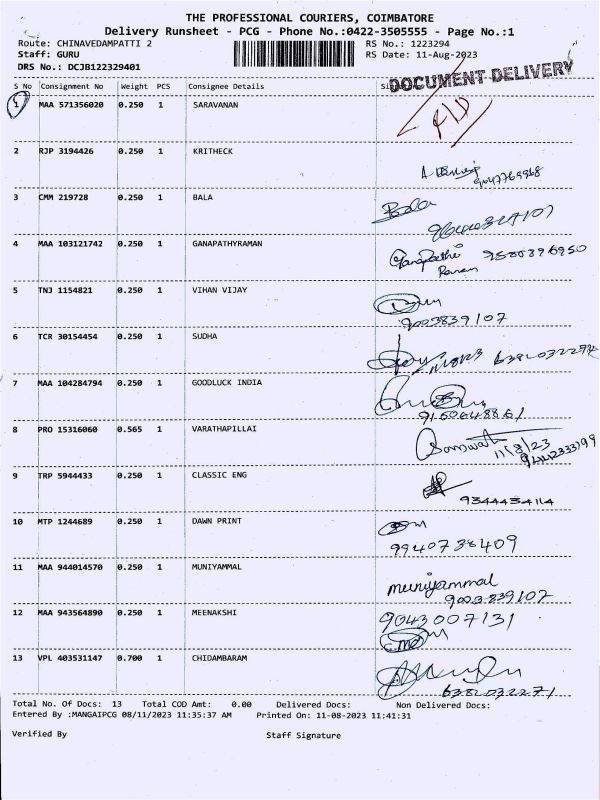 THE PROFESSIONAL COURIERS, COIMBATORE
Delivery Runsheet - PCG - Phone No.:0422-3505555 - Page No.:1
Route: CHINAVEDAMPATTI 2 RS No.: 1223294
Staff: GURU RS Date: 11-Aug-2023
DRS No.: DCJB122329401
DOCUMENT DELIVERY
S No Consignment No Weight PCS Consignee Details
1 MAA 571356020 0.250 1 SARAVANAN
2 RJP 3194426 0.250 1 KRITHECK
9047769968
3 CMM 219728 0.250 1 BALA
Bala
4 MAA 103121742 0.250 1 GANAPATHYRAMAN
Ganapathi 9580396950
Raman
5 TNJ 1154821 0.250 1 VIHAN VIJAY
9003839107
6 TCR 30154454 0.250 1 SUDHA
7 MAA 104284794 0.250 1 GOODLUCK INDIA
8 PRO 15316060 0.565 1 VARATHAPILLAI
Saraswathi
11/8/23
9 TRP 5944433 0.250 1 CLASSIC ENG
9344434114
10 MTP 1244689 0.250 1 DAWN PRINT
9940738409
11 MAA 944014570 0.250 1 MUNIYAMMAL
muniyammal
9003839107
12 MAA 943564890 0.250 1 MEENAKSHI
9043007131
13 VPL 403531147 0.700 1 CHIDAMBARAM
6382032271
Total No. Of Docs: 13 Total COD Amt: 0.00 Delivered Docs: Non Delivered Docs:
Entered By :MANGAIPCG 08/11/2023 11:35:37 AM Printed On: 11-08-2023 11:41:31
Verified By Staff Signature